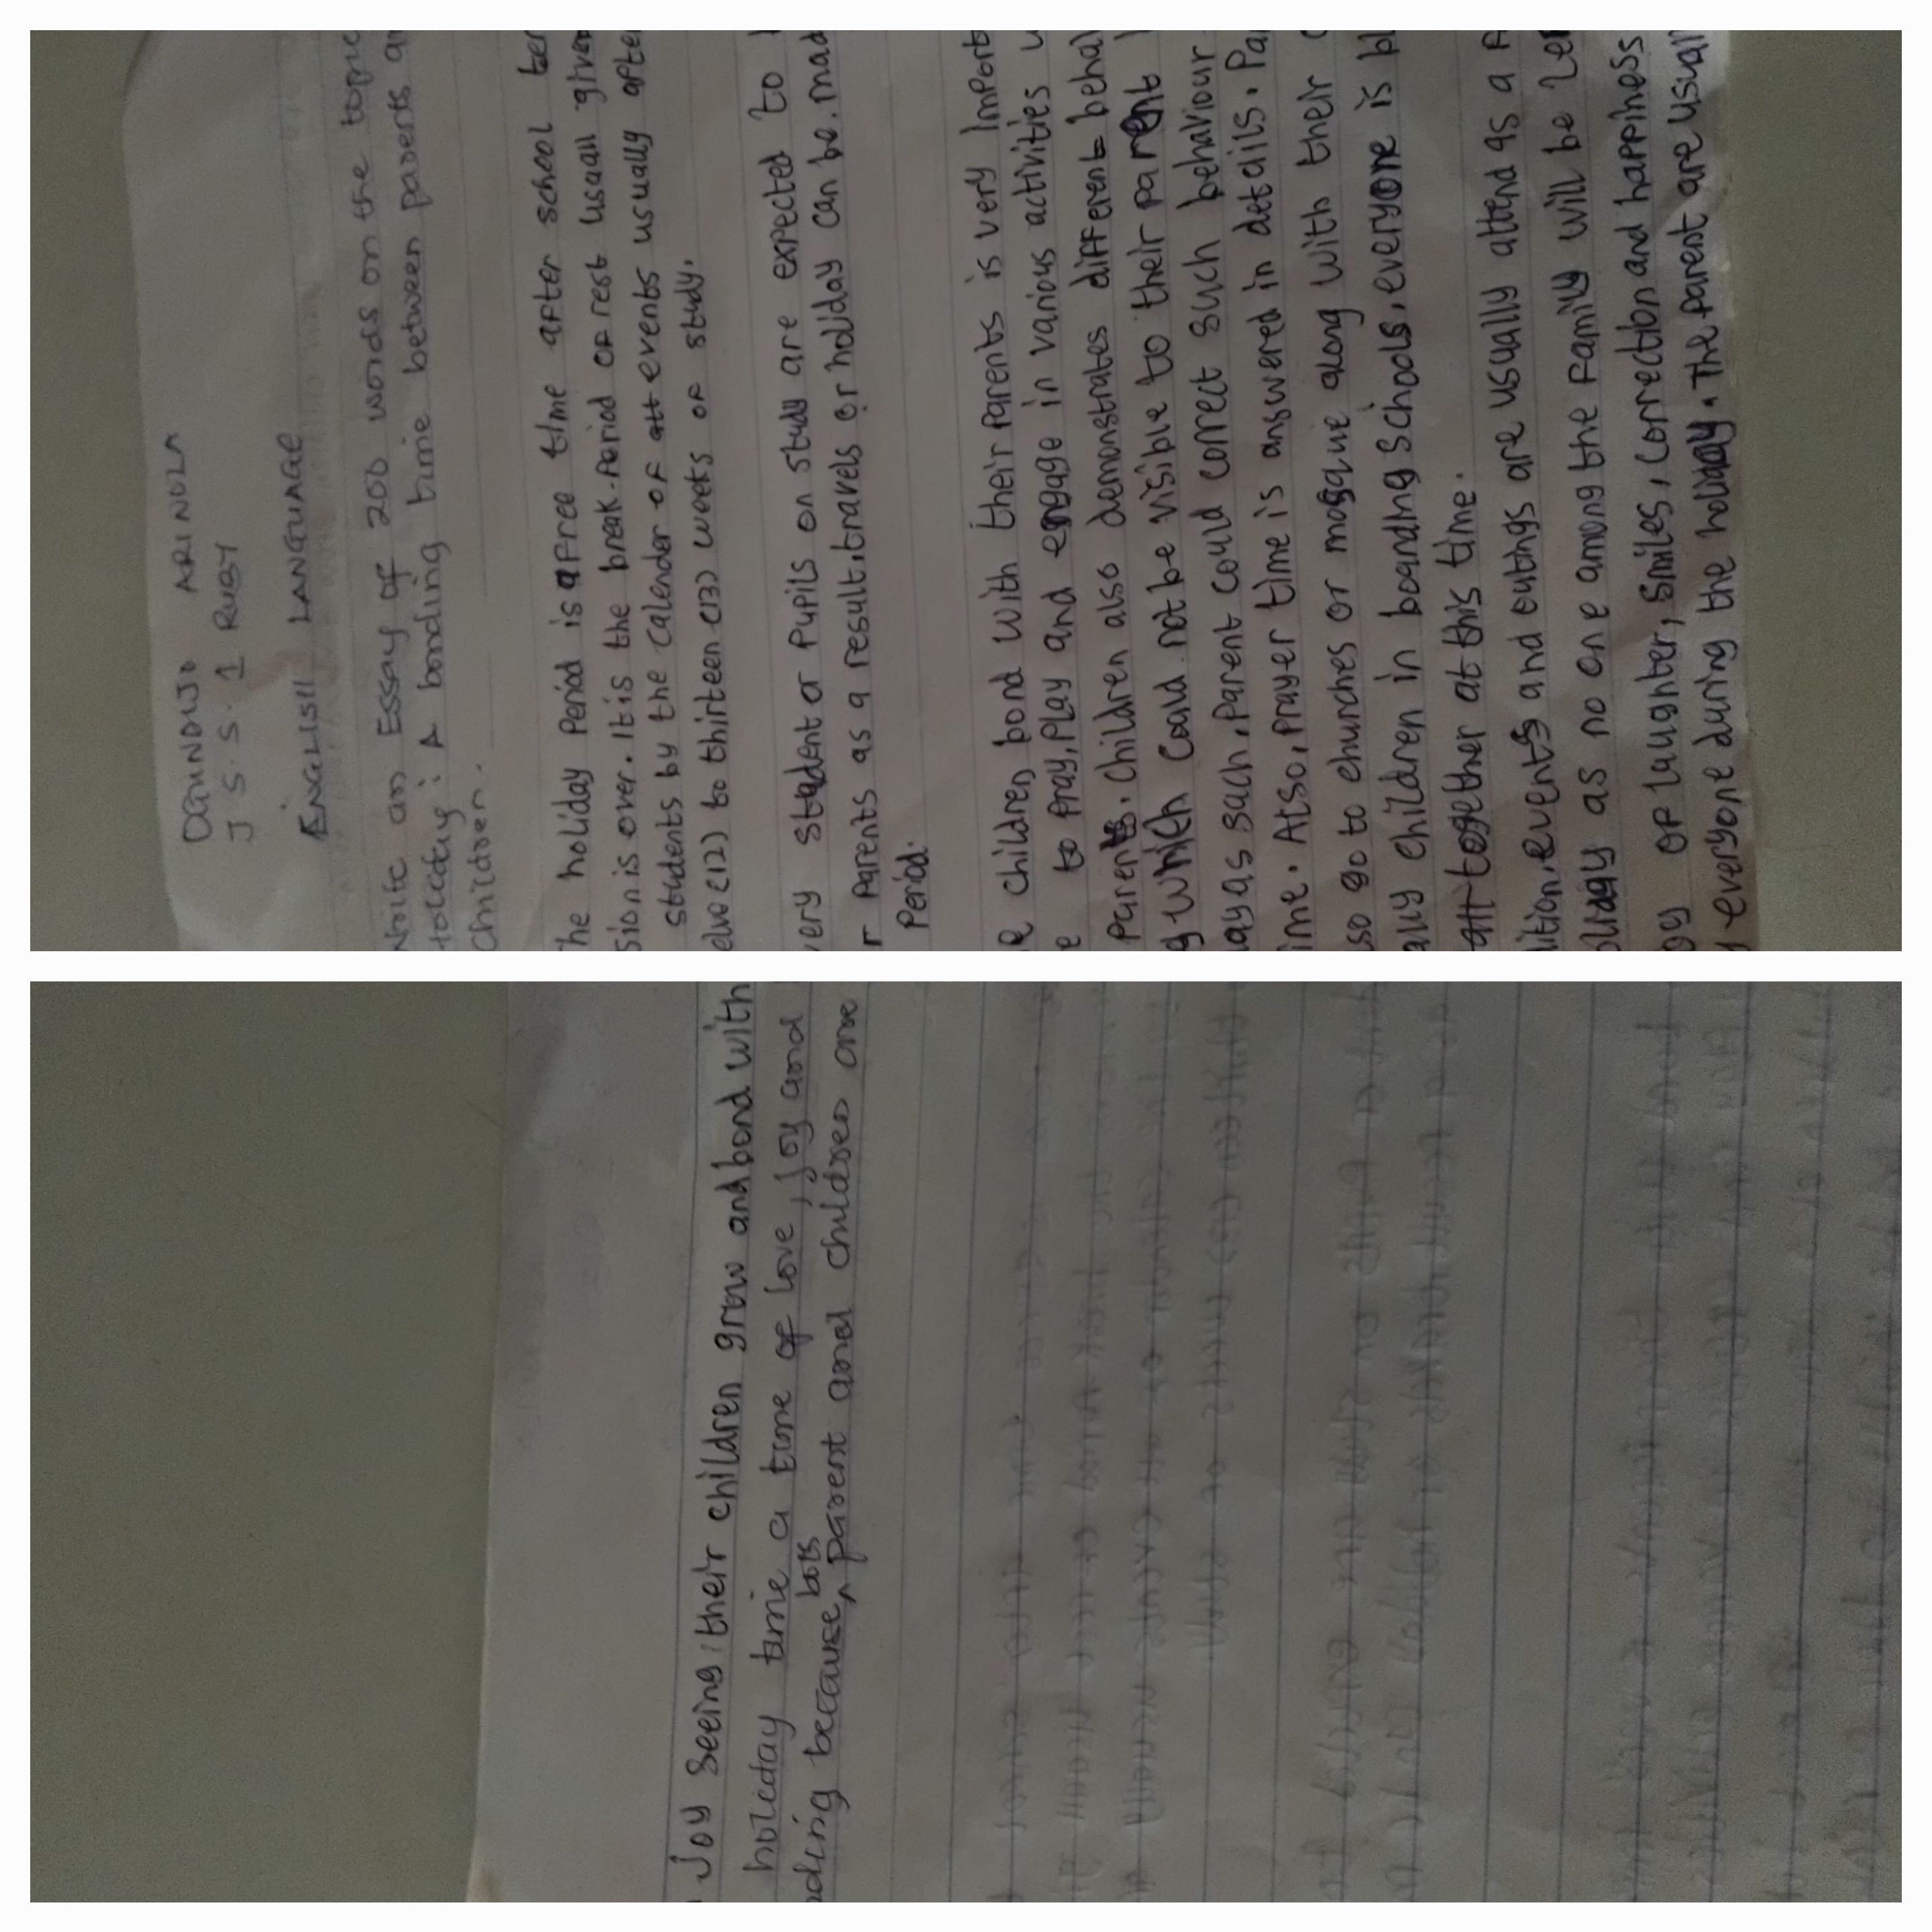 OGUNDIJO ARINOLA
J.S.S. 1 RUBY
ENGLISH LANGUAGE
Write an Essay of 200 words on the topic
Holiday: A bonding time between parents an
Children.
The holiday Period is a free time after school ter
sion is over. It is the break-Period of rest usuall given
students by the Calender of events usually after
elve (12) to thirteen (13) weeks of study.
very student or Pupils on study are expected to
r Parents as a result, travels or holiday can be mad
Period.
e children bond with their Parents is very Import
e to Pray, Play and engage in various activities
Parents. Children also demonstrates different behav
g which Could not be visible to their parent
ay as such, Parent could correct such behaviour
ime. Also, Prayer time is answered in details. Pa
so go to churches or mosque along with their
ally children in boarding schools, everyone is bl
together at this time.
ition, events and outings are usually attend as a F
oliday as no one among the Family will be Lef
oy of laughter, smiles, Correction and happiness
y everyone during the holiday. The Parent are usuall
Joy seeing their children grow and bond with
holiday time a time of love, joy and
nding because both parent and children are